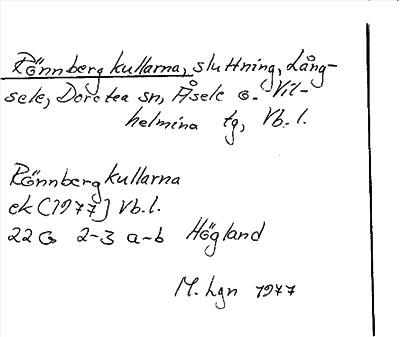 Rönnbergkullarna, sluttning, Lång-
sele, Dorotea sn, Åsele o. Vil-
helmina tg, Vb. l.
Rönnbergkullarna
ek (1977) Vb.l.
22 G 2-3 a-b Högland
M. Lgn 1977